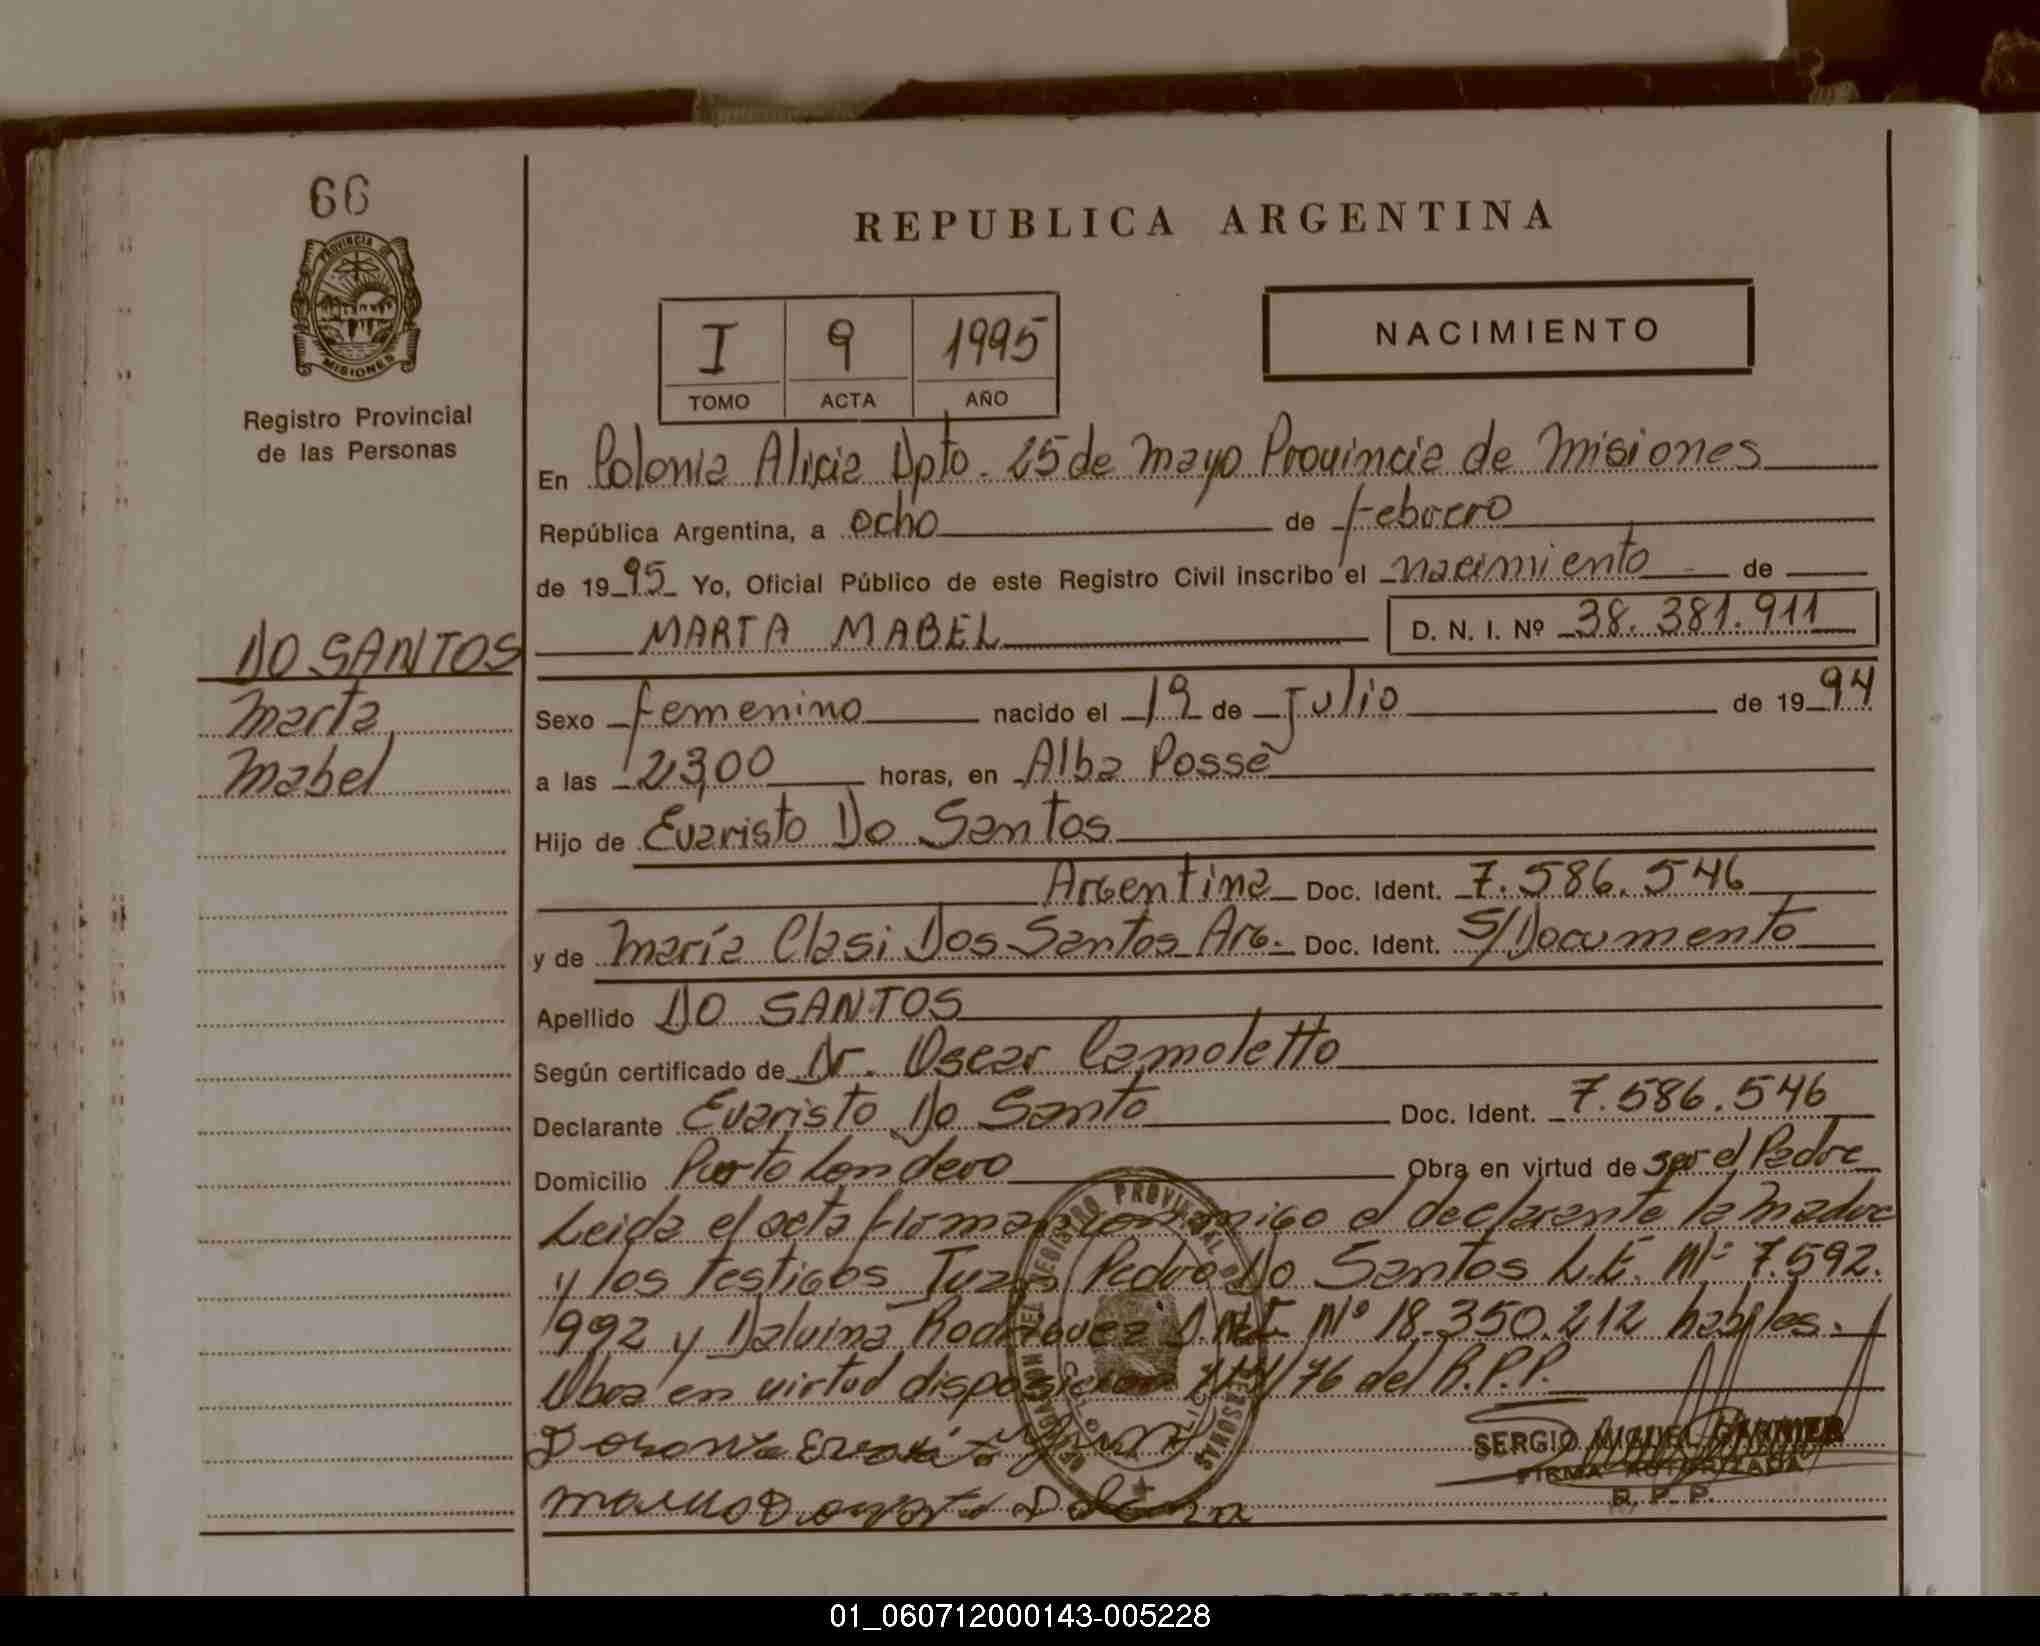 66
PROVINCIA DE
MISIONES
Registro Provincial
de las Personas
DO SANTOS
Marta
Mabel
REPUBLICA ARGENTINA
I 9 1995
TOMO ACTA AÑO
NACIMIENTO
En Colonia Alicia Dpto. 25 de Mayo Provincia de Misiones
República Argentina, a ocho de febrero
de 1995 Yo, Oficial Público de este Registro Civil inscribo el nacimiento de
MARTA MABEL D. N. I. Nº 38.381.911
Sexo femenino nacido el 19 de Julio de 1994
a las 23,00 horas, en Alba Posse
Hijo de Evaristo Do Santos
Argentina Doc. Ident. 7.586.546
y de María Clasi Dos Santos Arg. Doc. Ident. S/Documento
Apellido DO SANTOS
Según certificado de Dr. Oscar Camoletto
Declarante Evaristo Do Santo Doc. Ident. 7.586.546
Domicilio Puerto Londero Obra en virtud de ser el Padre
Leida el acta firman conmigo el declarante la Madre
y los testigos Juan Pedro Do Santos L.E. Nº 7.592.
992 y Dalvina Rodriguez D.N.I. Nº 18.350.212 habiles.
Obra en virtud disposicion /76 del R.P.P.
SERGIO MIGUEL GARNIER
FIRMA AUTORIZADA
R. P. P.
01_060712000143-005228